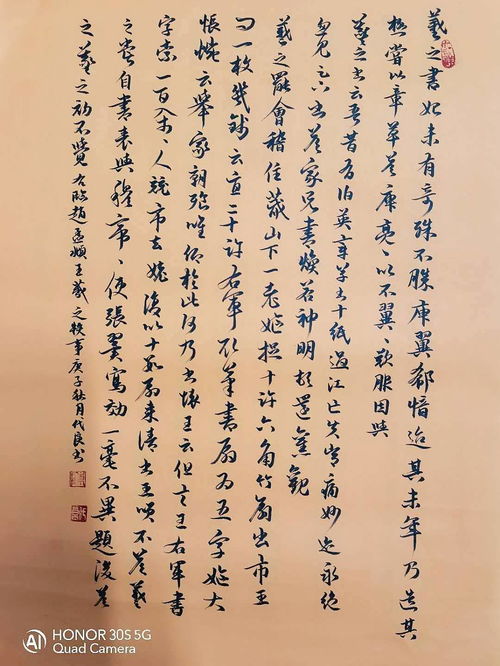 羲之書初未有奇殊不勝庾翼郗愔迨其末年乃造其
極嘗以章草答庾亮、以示翼、歎服因與
羲之書云吾昔有伯英章草書十紙過江亡失常痛妙迹永絕
忽見足下答家兄書煥若神明頓還舊觀
羲之罷會稽住蕺山下一老嫗捉十許六角竹扇出市王
問一枚幾錢云直二十許右軍取筆書扇為五字嫗大
悵惋云舉家朝飧唯仰於此何乃書壞王云但言王右軍書
字索一百入市、人競市去嫗復以十數扇來請書王笑不答羲
之嘗自書表與穆帝、使張翼寫効一毫不異題後答
之羲之初不覺 右臨趙孟頫王羲之軼事庚子秋月代良書
AI HONOR 30S 5G
Quad Camera